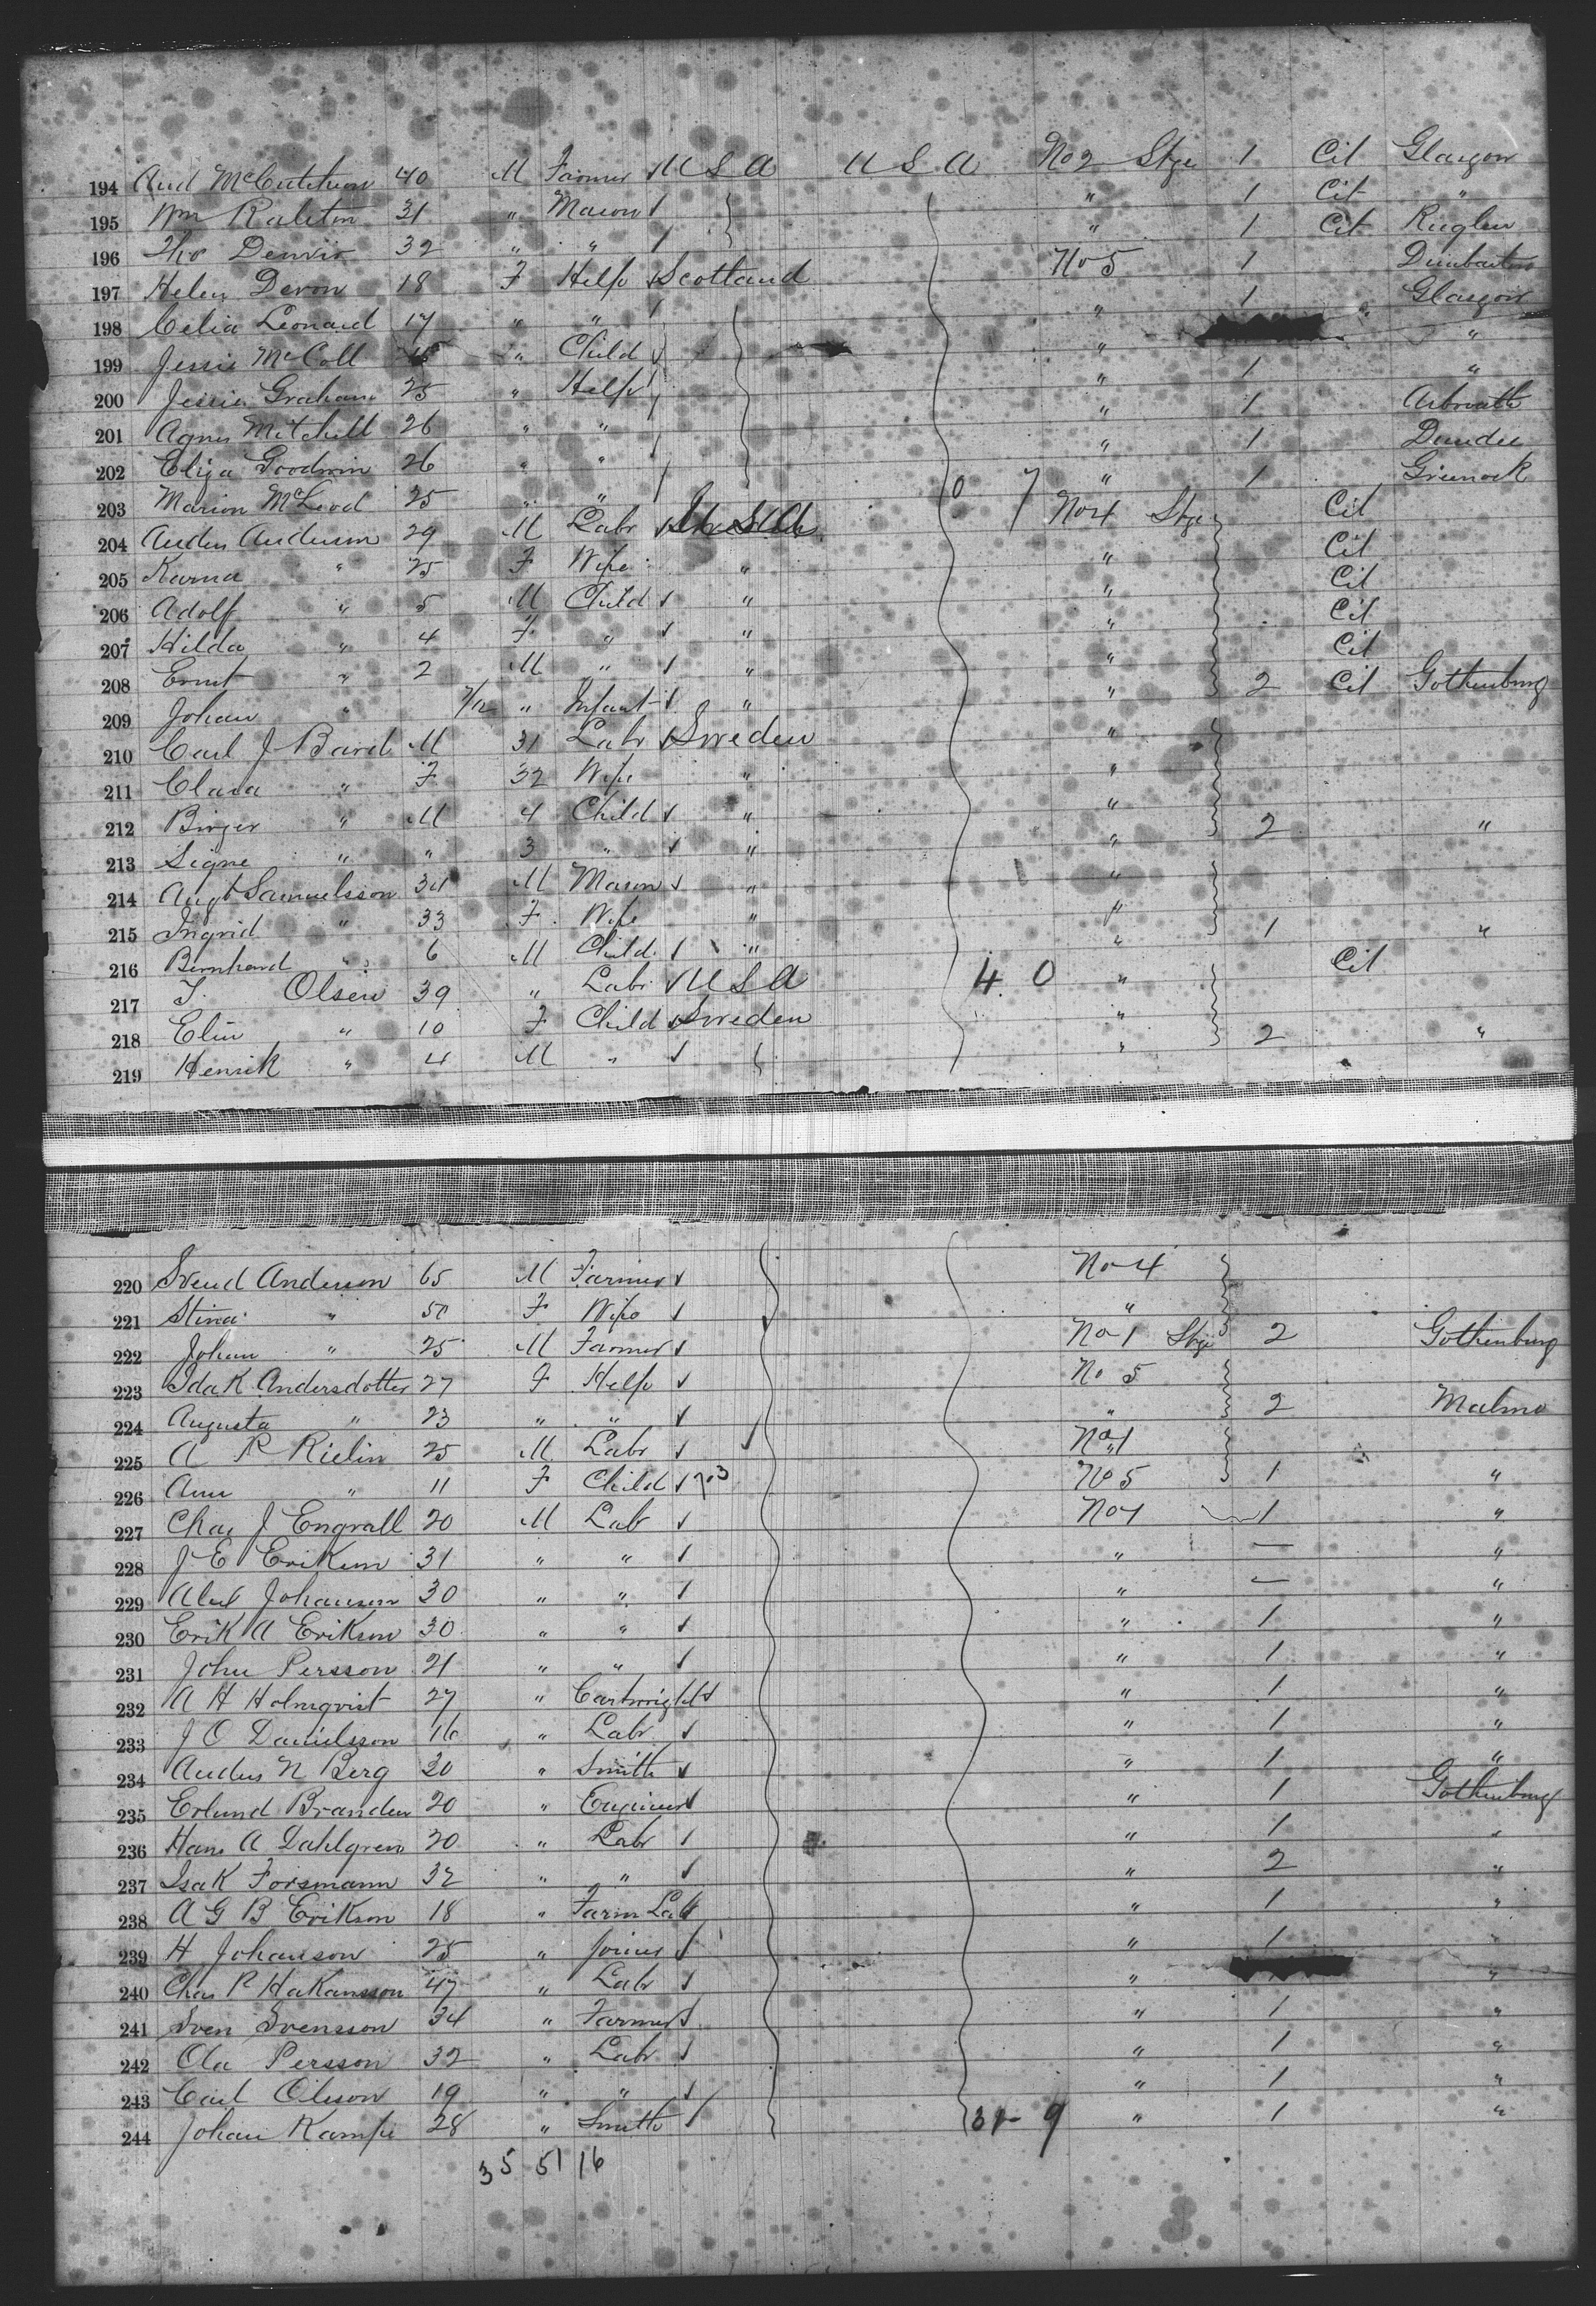 194 And McCutcheon 40 M Farmer U S A U S A No 2 Stge 1 Cit Glasgow
195 Wm Ralston 31 " Mason " 1 Cit "
196 Tho 32 " " " 1 Cit Ruglen
197 Helen Devon 18 F Help Scotland No 5 1 Dumbarton
198 Celia Leonard 17 " " " 1 Glasgow
199 Jessie McColl " Child " "
200 Jessie Graham 25 " Help " 1 "
201 Agnes Mitchell 26 " " " 1 Arbroath
202 Eliza Goodwin 26 " " " 1 Dundee
203 Marion McLeod 25 " " 0 7 " 1 Greenock
204 Anders Anderson 29 M Labr No 4 Stge Cit
205 Karna " 25 F Wife " " Cit
206 Adolf " 5 M Child " " Cit
207 Hilda " 4 F " " " Cit
208 Ernst " 2 M " " " Cit
209 Johan " 7/12 " Infant " " 2 Cit Gothenburg
210 Carl J Bard M 31 Labr Sweden "
211 Clara " F 32 Wife " "
212 Birger " M 4 Child " "
213 Signe " " 3 " " " 2 "
214 Augt Samuelsson 34 M Mason " "
215 Ingrid " 33 F Wife " "
216 Bernhard " 6 M Child " " 1 "
217 J. Olsen 39 " Labr U S A 4 0 " Cit
218 Elin " 10 F Child Sweden "
219 Henrik " 4 M " " 2 "
220 Svend Anderson 65 M Farmer No 4
221 Stina " 50 F Wife "
222 Johan " 25 M Farmer No 1 Stge 2 Gothenburg
223 Ida K Andersdotter 27 F Help No 5
224 Augusta " 23 " " " 2 Malmo
225 A P Rielin 25 M Labr No 1
226 Ann " 11 F Child No 5 1 "
227 Chas J Engvall 20 M Lab No 1 1 "
228 J E Erikson 31 " " " — "
229 Alex Johanson 30 " " " — "
230 Erik A Erikson 30 " " " 1 "
231 John Persson 21 " " " 1 "
232 A H Holmqvist 27 " Cartwright " 1 "
233 J O Danielsson 16 " Labr " 1 "
234 Anders N Berg 20 " Smith " 1 "
235 Erlund Brander 20 " Engineer " 1 Gothenburg
236 Hans A Dahlgren 20 " Labr " 1 "
237 Isak Forsmann 32 " " " 2 "
238 A G B Erikson 18 " Farm Lab " 1 "
239 H Johanson 25 " Joiner " 1 "
240 Chas P Hakansson 47 " Labr " "
241 Sven Svensson 34 " Farmer " 1 "
242 Ola Persson 32 " Labr " 1 "
243 Carl Olsson 19 " " " 1 "
244 Johan Kampe 28 " Smith 31- 9 " 1 "
35 51 16